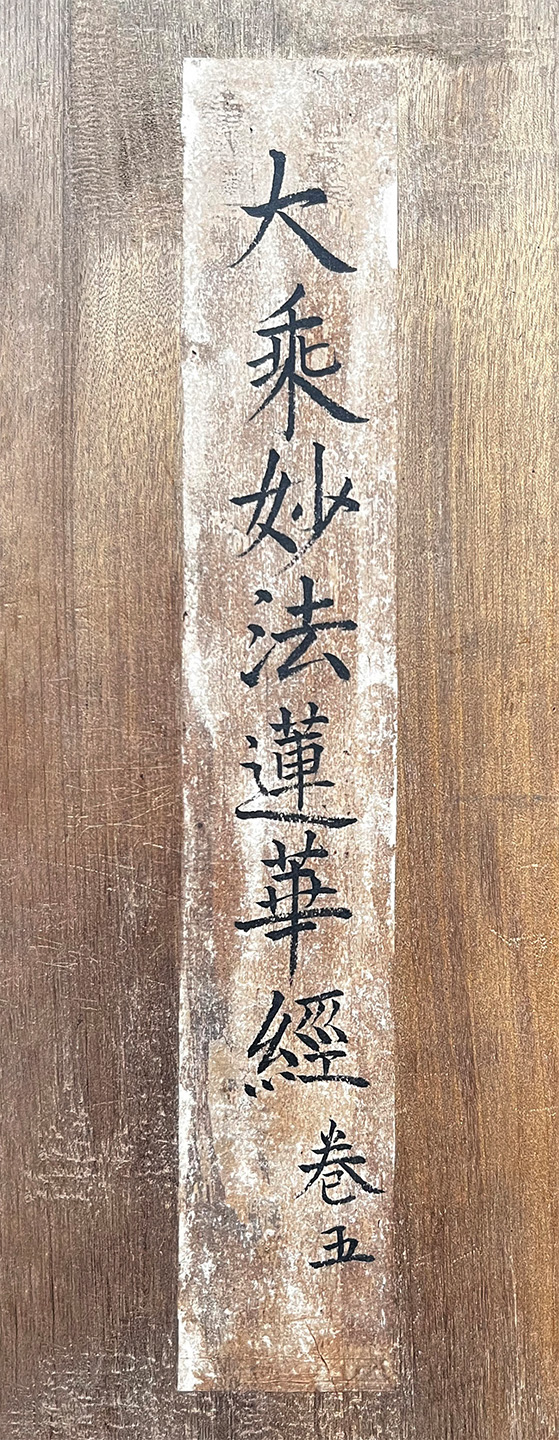 大乘妙法蓮華經卷五